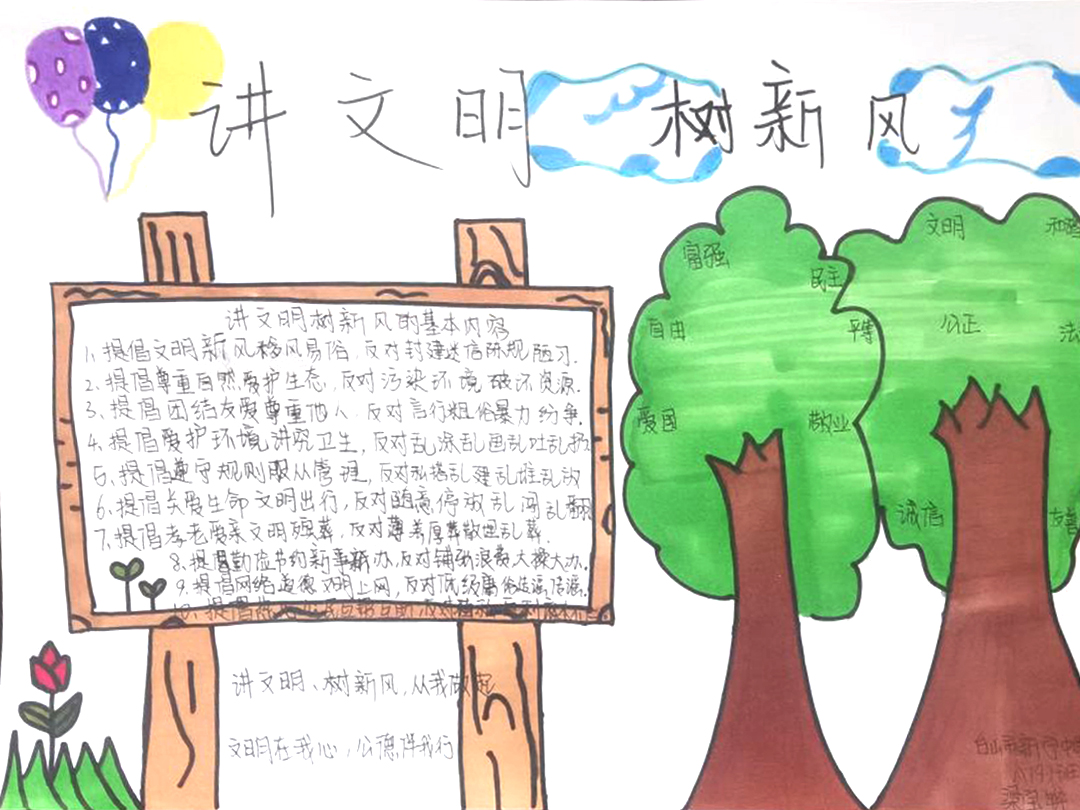 讲文明 树新风
讲文明树新风的基本内容
1、提倡文明新风移风易俗，反对封建迷信陈规陋习.
2、提倡尊重自然爱护生态，反对污染环境破坏资源.
3、提倡团结友爱尊重他人，反对言行粗俗暴力纷争.
4、提倡爱护环境讲究卫生，反对乱涂乱画乱吐乱扔
5、提倡遵守规则服从管理，反对私搭乱建乱堆乱放
6、提倡关爱生命文明出行，反对随意停放乱闯乱翻
7、提倡孝老爱亲文明殡葬，反对薄养厚葬散埋乱葬.
8、提倡勤俭节约新事新办，反对铺张浪费大操大办.
9、提倡网络道德文明上网，反对低级庸俗造谣传谣.
10、提倡
富强
民主
文明
和谐
自由
平等
公正
法
爱国
敬业
诚信
友善
讲文明、树新风，从我做起
文明在我心，公德伴我行
白山市新宇中